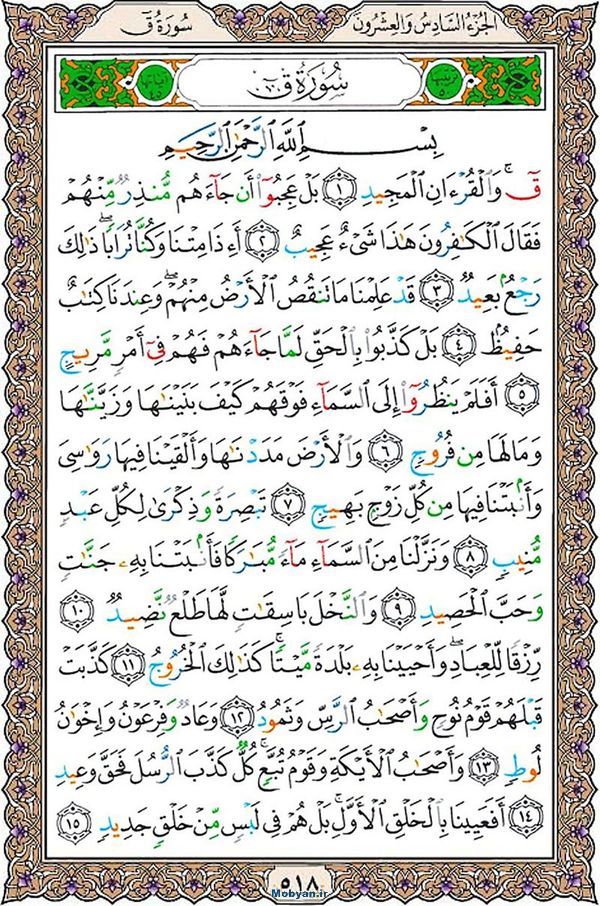 الجزء السادس والعشرون
سورة ق
سُورَةُ ق
بِسْمِ ٱللَّهِ ٱلرَّحْمَٰنِ ٱلرَّحِيمِ
قٓ ۚ وَٱلْقُرْءَانِ ٱلْمَجِيدِ ١ بَلْ عَجِبُوٓا۟ أَن جَآءَهُم مُّنذِرٌ مِّنْهُمْ
فَقَالَ ٱلْكَٰفِرُونَ هَٰذَا شَىْءٌ عَجِيبٌ ٢ أَءِذَا مِتْنَا وَكُنَّا تُرَابًا ۖ ذَٰلِكَ
رَجْعٌۢ بَعِيدٌ ٣ قَدْ عَلِمْنَا مَا تَنقُصُ ٱلْأَرْضُ مِنْهُمْ ۖ وَعِندَنَا كِتَٰبٌ
حَفِيظٌۢ ٤ بَلْ كَذَّبُوا۟ بِٱلْحَقِّ لَمَّا جَآءَهُمْ فَهُمْ فِىٓ أَمْرٍ مَّرِيجٍ
٥ أَفَلَمْ يَنظُرُوٓا۟ إِلَى ٱلسَّمَآءِ فَوْقَهُمْ كَيْفَ بَنَيْنَٰهَا وَزَيَّنَّٰهَا
وَمَا لَهَا مِن فُرُوجٍ ٦ وَٱلْأَرْضَ مَدَدْنَٰهَا وَأَلْقَيْنَا فِيهَا رَوَٰسِىَ
وَأَنۢبَتْنَا فِيهَا مِن كُلِّ زَوْجٍۭ بَهِيجٍ ٧ تَبْصِرَةً وَذِكْرَىٰ لِكُلِّ عَبْدٍ
مُّنِيبٍ ٨ وَنَزَّلْنَا مِنَ ٱلسَّمَآءِ مَآءً مُّبَٰرَكًا فَأَنۢبَتْنَا بِهِۦ جَنَّٰتٍ
وَحَبَّ ٱلْحَصِيدِ ٩ وَٱلنَّخْلَ بَاسِقَٰتٍ لَّهَا طَلْعٌ نَّضِيدٌ ١٠
رِّزْقًا لِّلْعِبَادِ ۖ وَأَحْيَيْنَا بِهِۦ بَلْدَةً مَّيْتًا ۚ كَذَٰلِكَ ٱلْخُرُوجُ ١١ كَذَّبَتْ
قَبْلَهُمْ قَوْمُ نُوحٍ وَأَصْحَٰبُ ٱلرَّسِّ وَثَمُودُ ١٢ وَعَادٌ وَفِرْعَوْنُ وَإِخْوَٰنُ
لُوطٍ ١٣ وَأَصْحَٰبُ ٱلْأَيْكَةِ وَقَوْمُ تُبَّعٍ ۚ كُلٌّ كَذَّبَ ٱلرُّسُلَ فَحَقَّ وَعِيدِ
١٤ أَفَعَيِينَا بِٱلْخَلْقِ ٱلْأَوَّلِ ۚ بَلْ هُمْ فِى لَبْسٍ مِّنْ خَلْقٍ جَدِيدٍ ١٥
٥١٨
Mobyan.ir